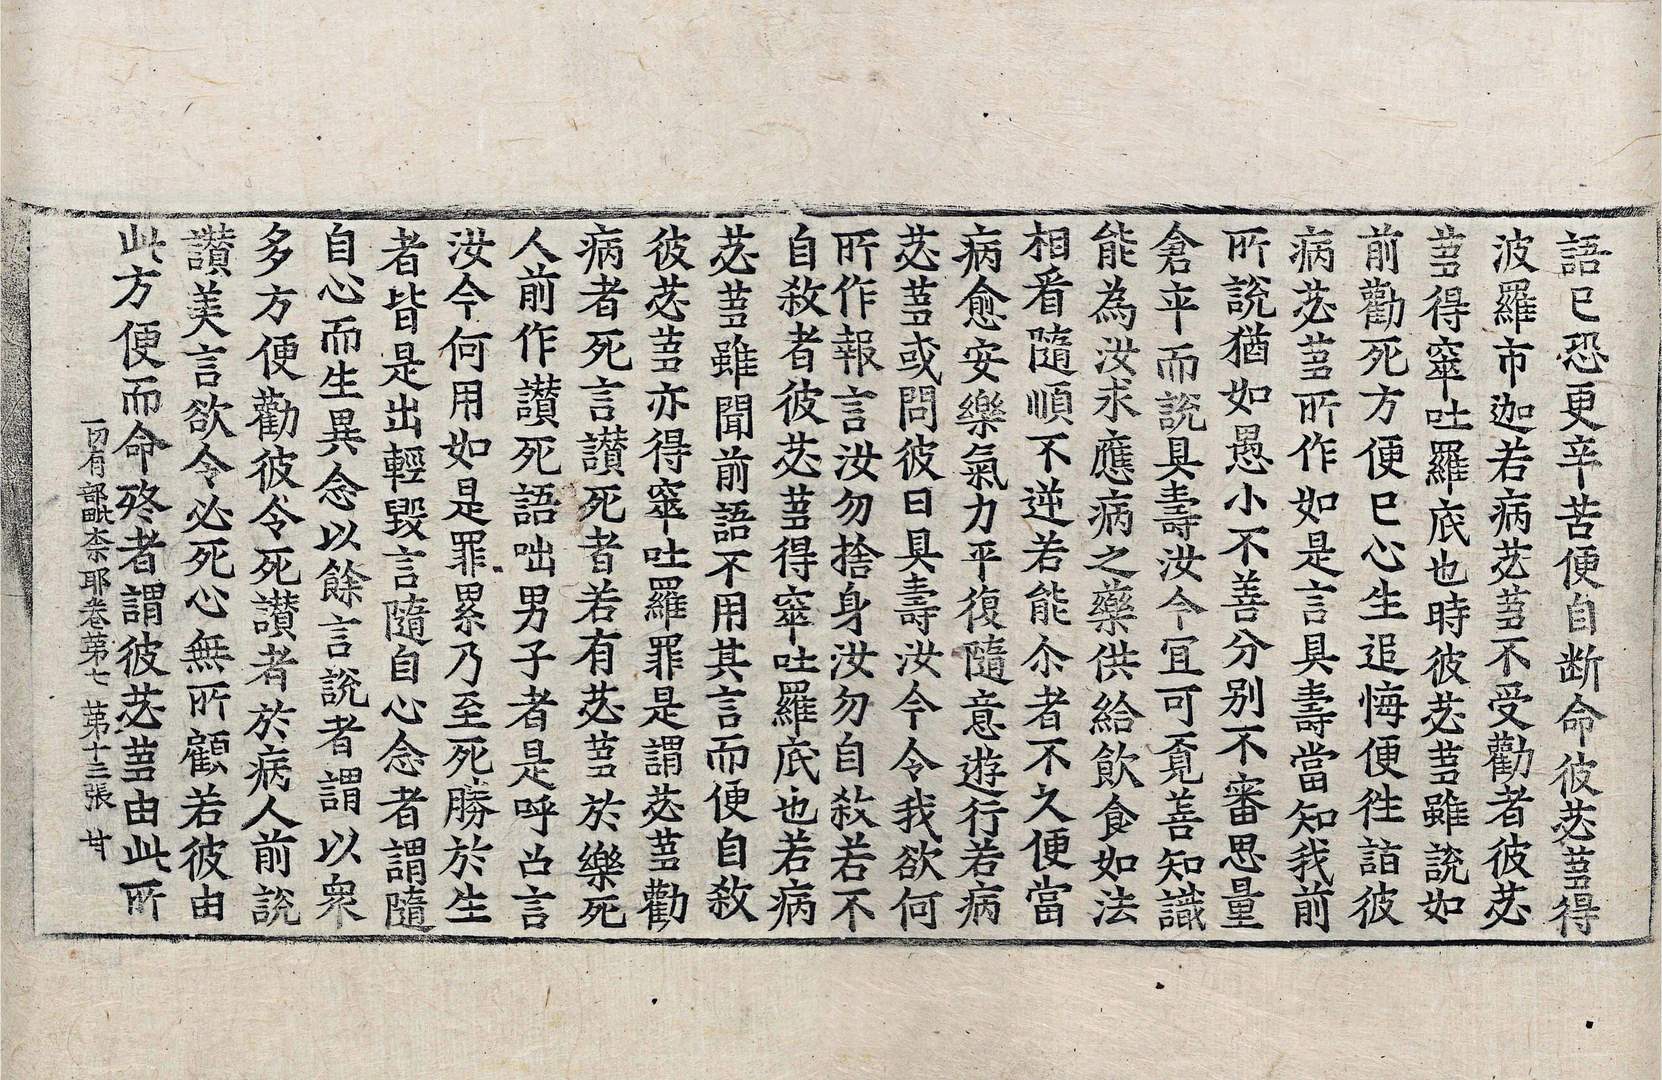 語已恐更辛苦便自断命彼苾蒭得
波羅市迦若病苾蒭不受勸者彼苾
蒭得窣吐羅底也時彼苾蒭雖說如
前勸死方便已心生追悔便往詣彼
病苾蒭所作如是言具壽當知我前
所說猶如愚小不善分別不審思量
倉卒而說具壽汝今冝可覓善知識
能為汝求應病之藥供給飲食如法
相看隨順不逆若能尒者不久便當
病愈安樂氣力平復隨意遊行若病
苾蒭或問彼曰具壽汝今令我欲何
所作報言汝勿捨身汝勿自敘若不
自敘者彼苾蒭得窣吐羅底也若病
苾蒭雖聞前語不用其言而便自敘
彼苾蒭亦得窣吐羅罪是謂苾蒭勸
病者死言讃死者若有苾蒭於樂死
人前作讃死語咄男子者是呼召言
汝今何用如是罪累乃至死勝於生
者皆是出輕毀言隨自心念者謂隨
自心而生異念以餘言說者謂以衆
多方便勸彼令死讃者於病人前說
讃美言欲令必死心無所顧若彼由
此方便而命終者謂彼苾蒭由此所
一切有部毗柰耶卷苐七 苐十三張 甘